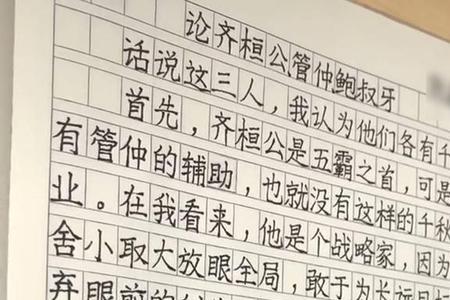 论齐桓公管仲鲍叔牙
话说这三人，我认为他们各有千
首先，齐桓公是五霸之首，可是
有管仲的辅助，也就没有这样的千秋
业。在我看来，他是个战略家，因为
舍小取大放眼全局，敢于为长远目标
弃眼前的